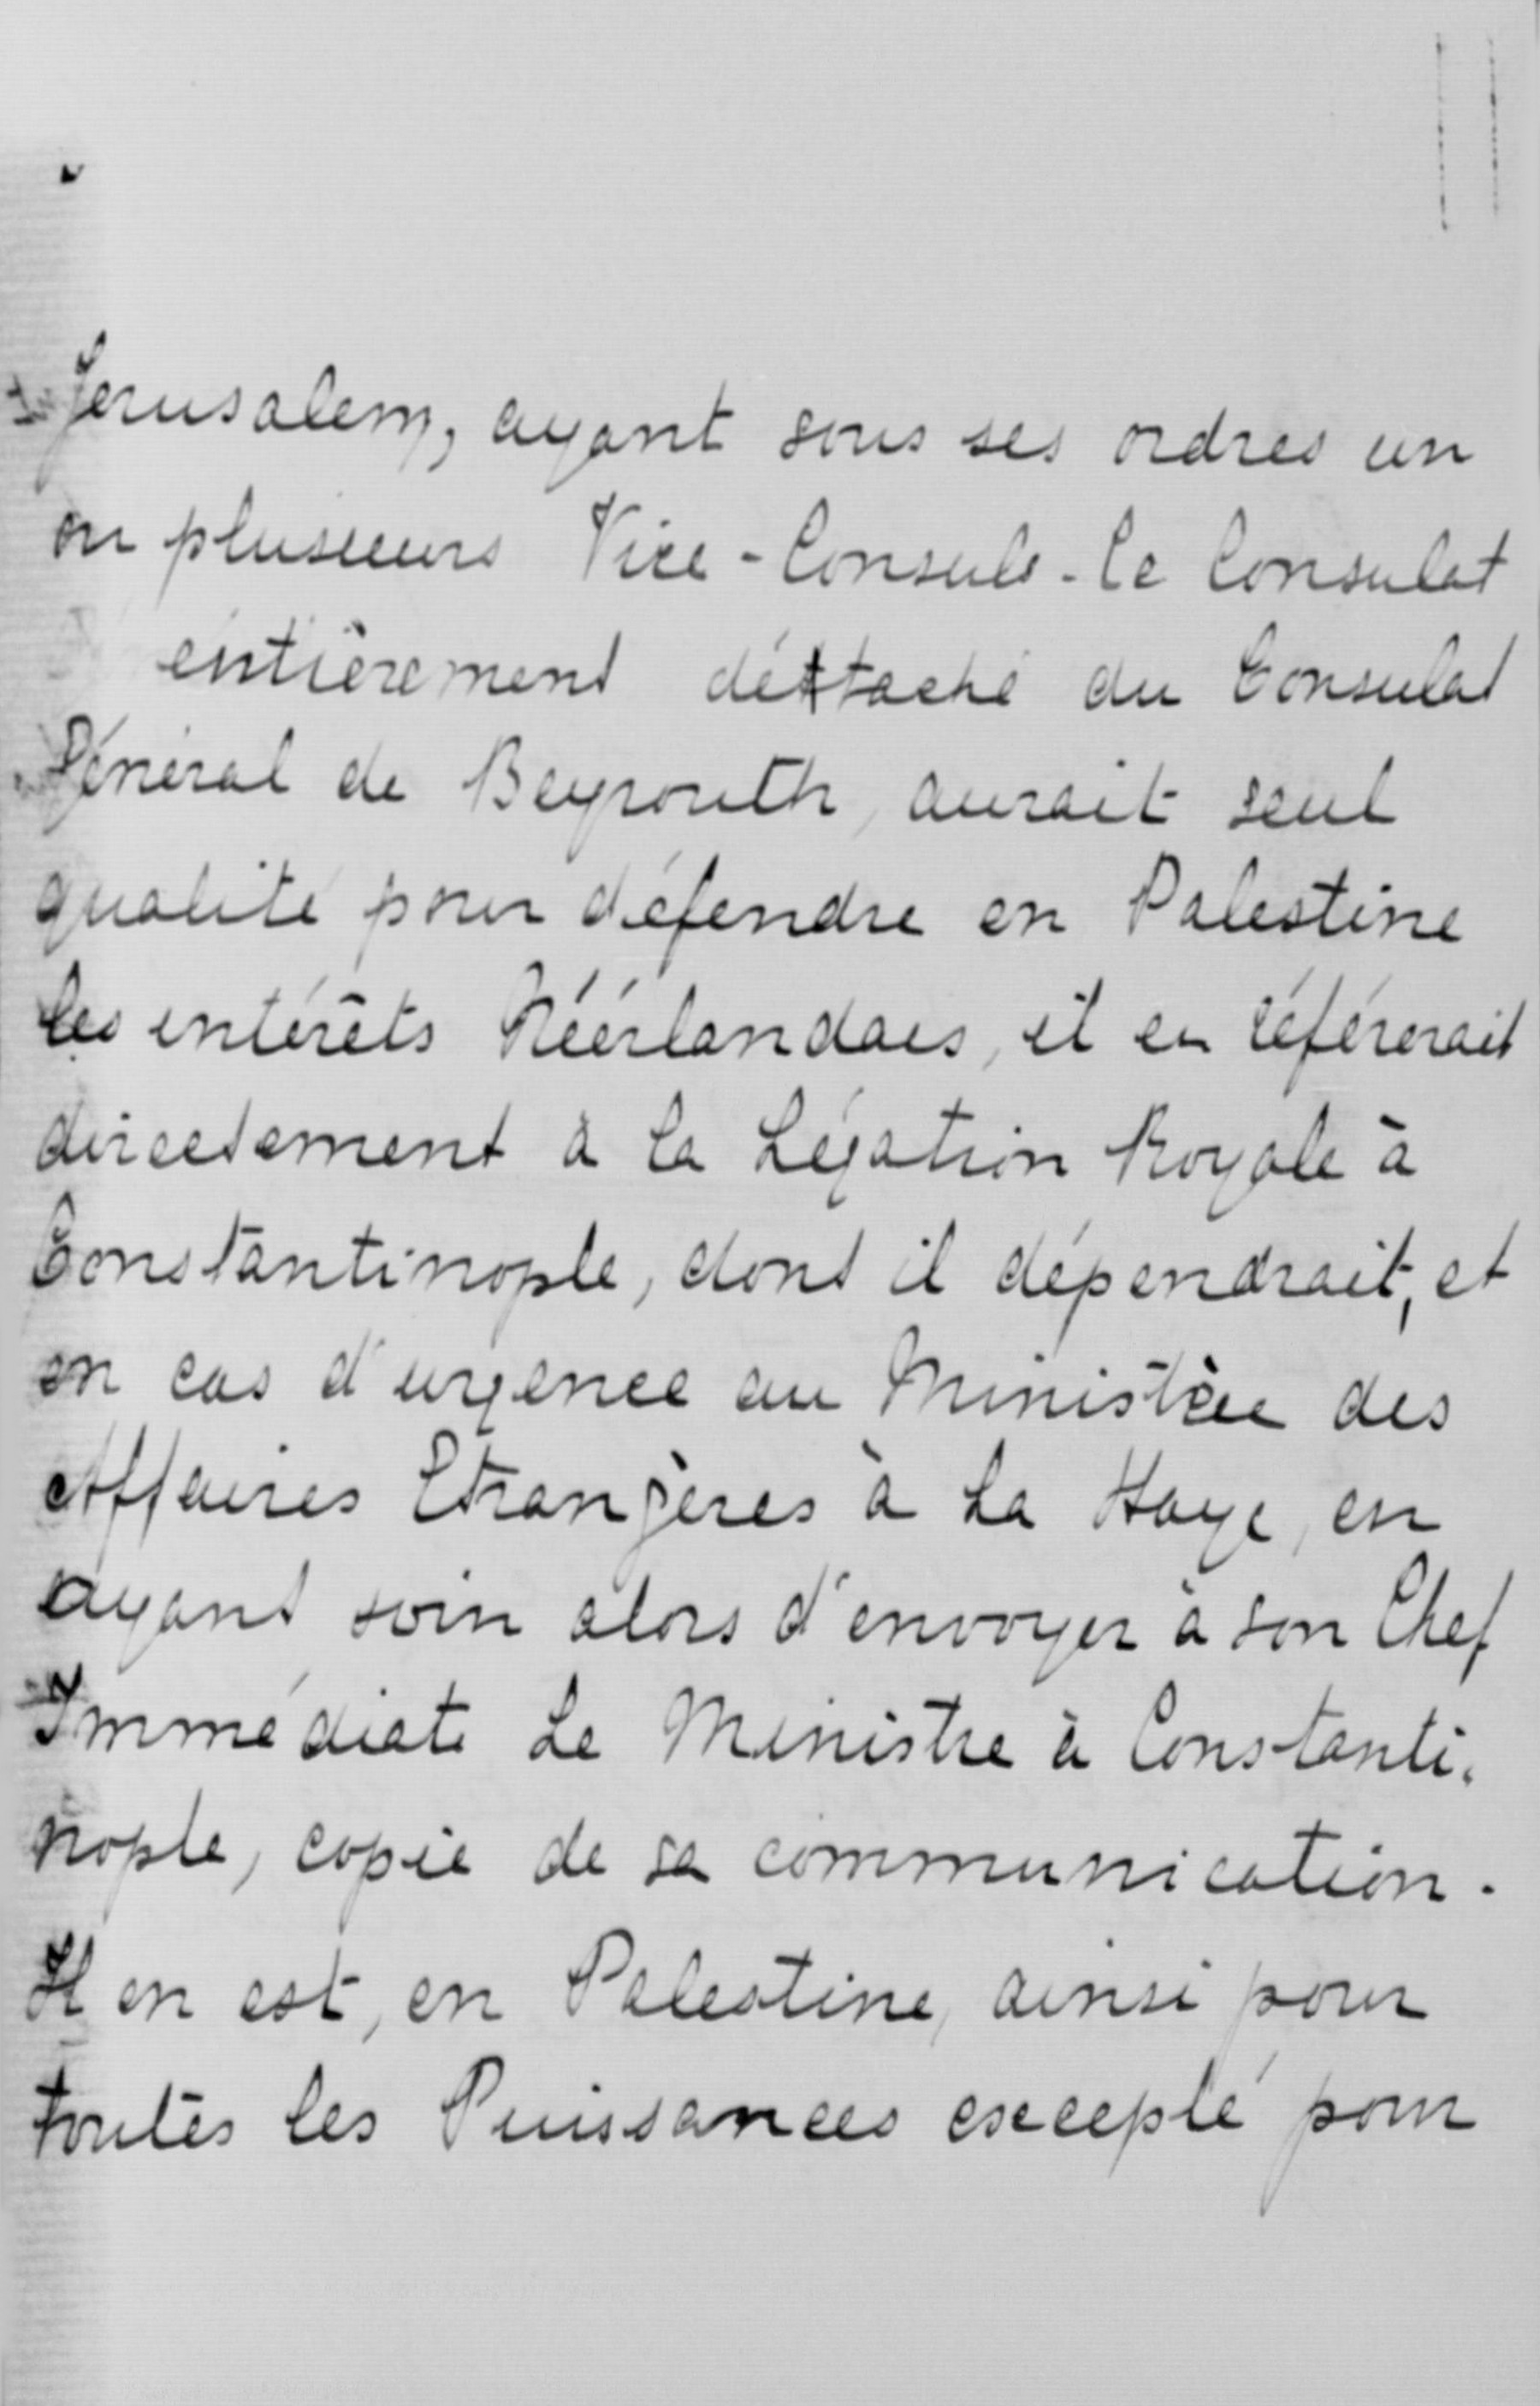 Jerusalem, ayant sous ses ordres un
ou plusieurs Vice-Consuls. Ce Consulat
entièrement détaché du Consulat
Général de Beyrouth, aurait seul
qualité pour défendre en Palestine
les intérêts Néérlandais, il en référerait
directement à la Légation Royale à
Constantinople, dont il dépendrait, et
en cas d'urgence au Ministère des
Affaires Etrangères à La Haye, en
ayant soin alors d'envoyer à son Chef
Immédiate Le Ministre à Constanti-
nople, copie de sa communication.
Il en est, en Palestine, ainsi pour
toutes les Puissances excepté pour